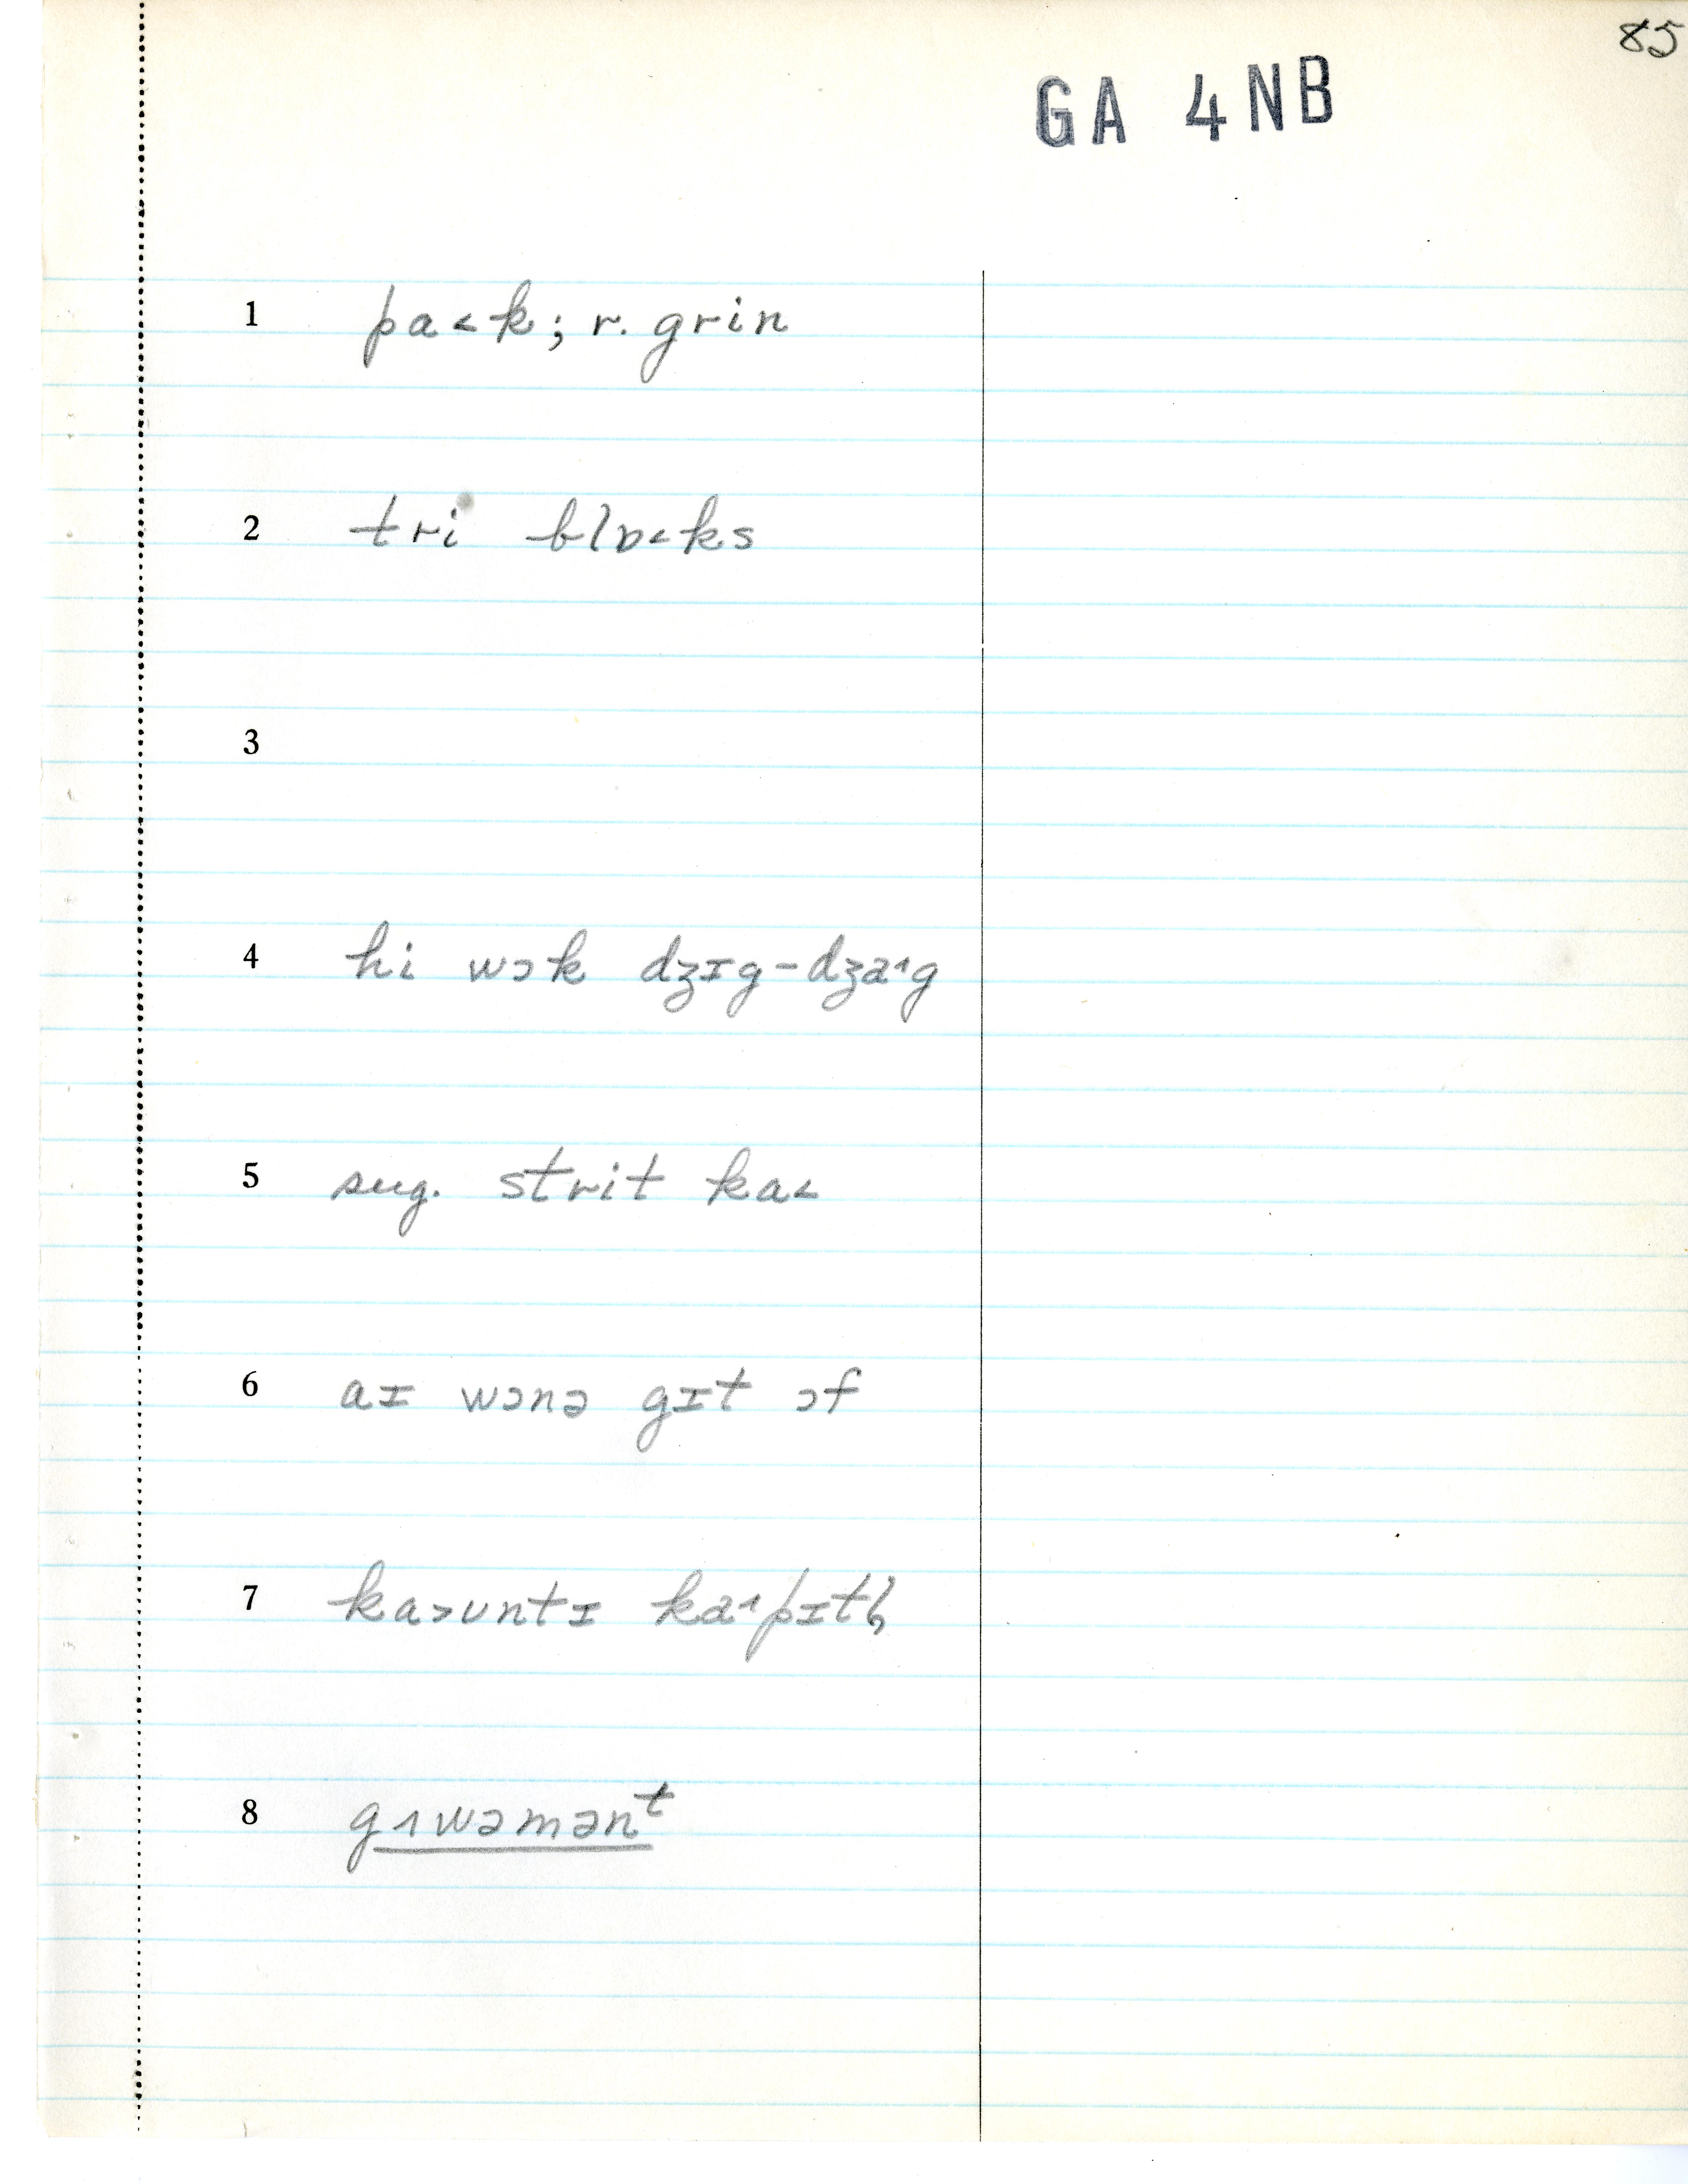 85
GA 4NB
1 pa˂k; r. grin
2 tri blɒ˂ks
3
4 hi wɔk dzɪg-dza˄g
5 sug. strit ka˂
6 aɪ wɔnə gɪt ɔf
7 ka˃ʊntɪ ka˄pɪtl̩
8 gɪwəmənᵗ